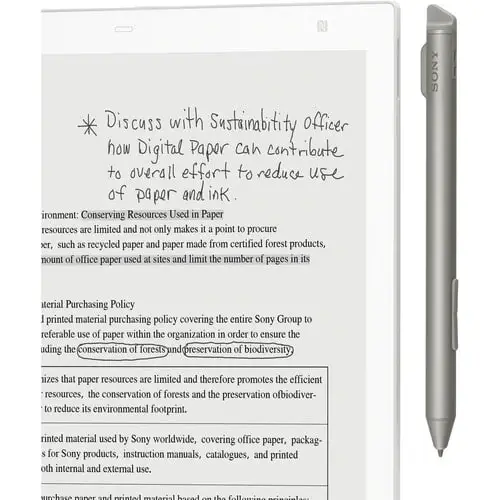 * Discuss with Sustainability Officer
how Digital Paper can contribute
to overall effort to reduce use
of paper and ink.
ironment: Conserving Resources Used in Paper
resources are limited and not only makes it a point to procure
per, such as recycled paper and paper made from certified forest products,
mount of office paper used at sites and limit the number of pages in its
aterial Purchasing Policy
d printed material purchasing policy covering the entire Sony Group to
referable use of paper within the organization in order to ensure the
uding the conservation of forests and the preservation of biodiversity.
nizes that paper resources are limited and therefore promotes the efficient
r resources, the conservation of forests and the preservation ofbiodiver-
r to reduce its environmental footprint.
rinted material used by Sony worldwide, covering office paper, packag-
s for Sony products, instruction manuals, catalogues, and printed
oth internal and external use.
urchase paper and printed material based on the following principles:
SONY